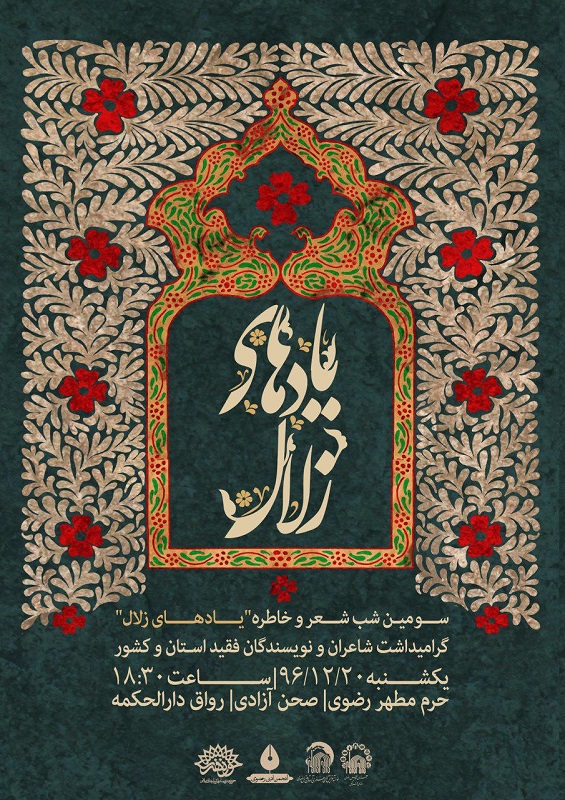 یادهای
زلال
سومین شب شعر و خاطره"یادهای زلال"
گرامیداشت شاعران و نویسندگان فقید استان و کشور
یکشنبه ۹۶/۱۲/۲۰|ساعت ۱۸:۳۰
حرم مطهر رضوی| صحن آزادی| رواق دارالحکمه
انجمن ادبی رضوی